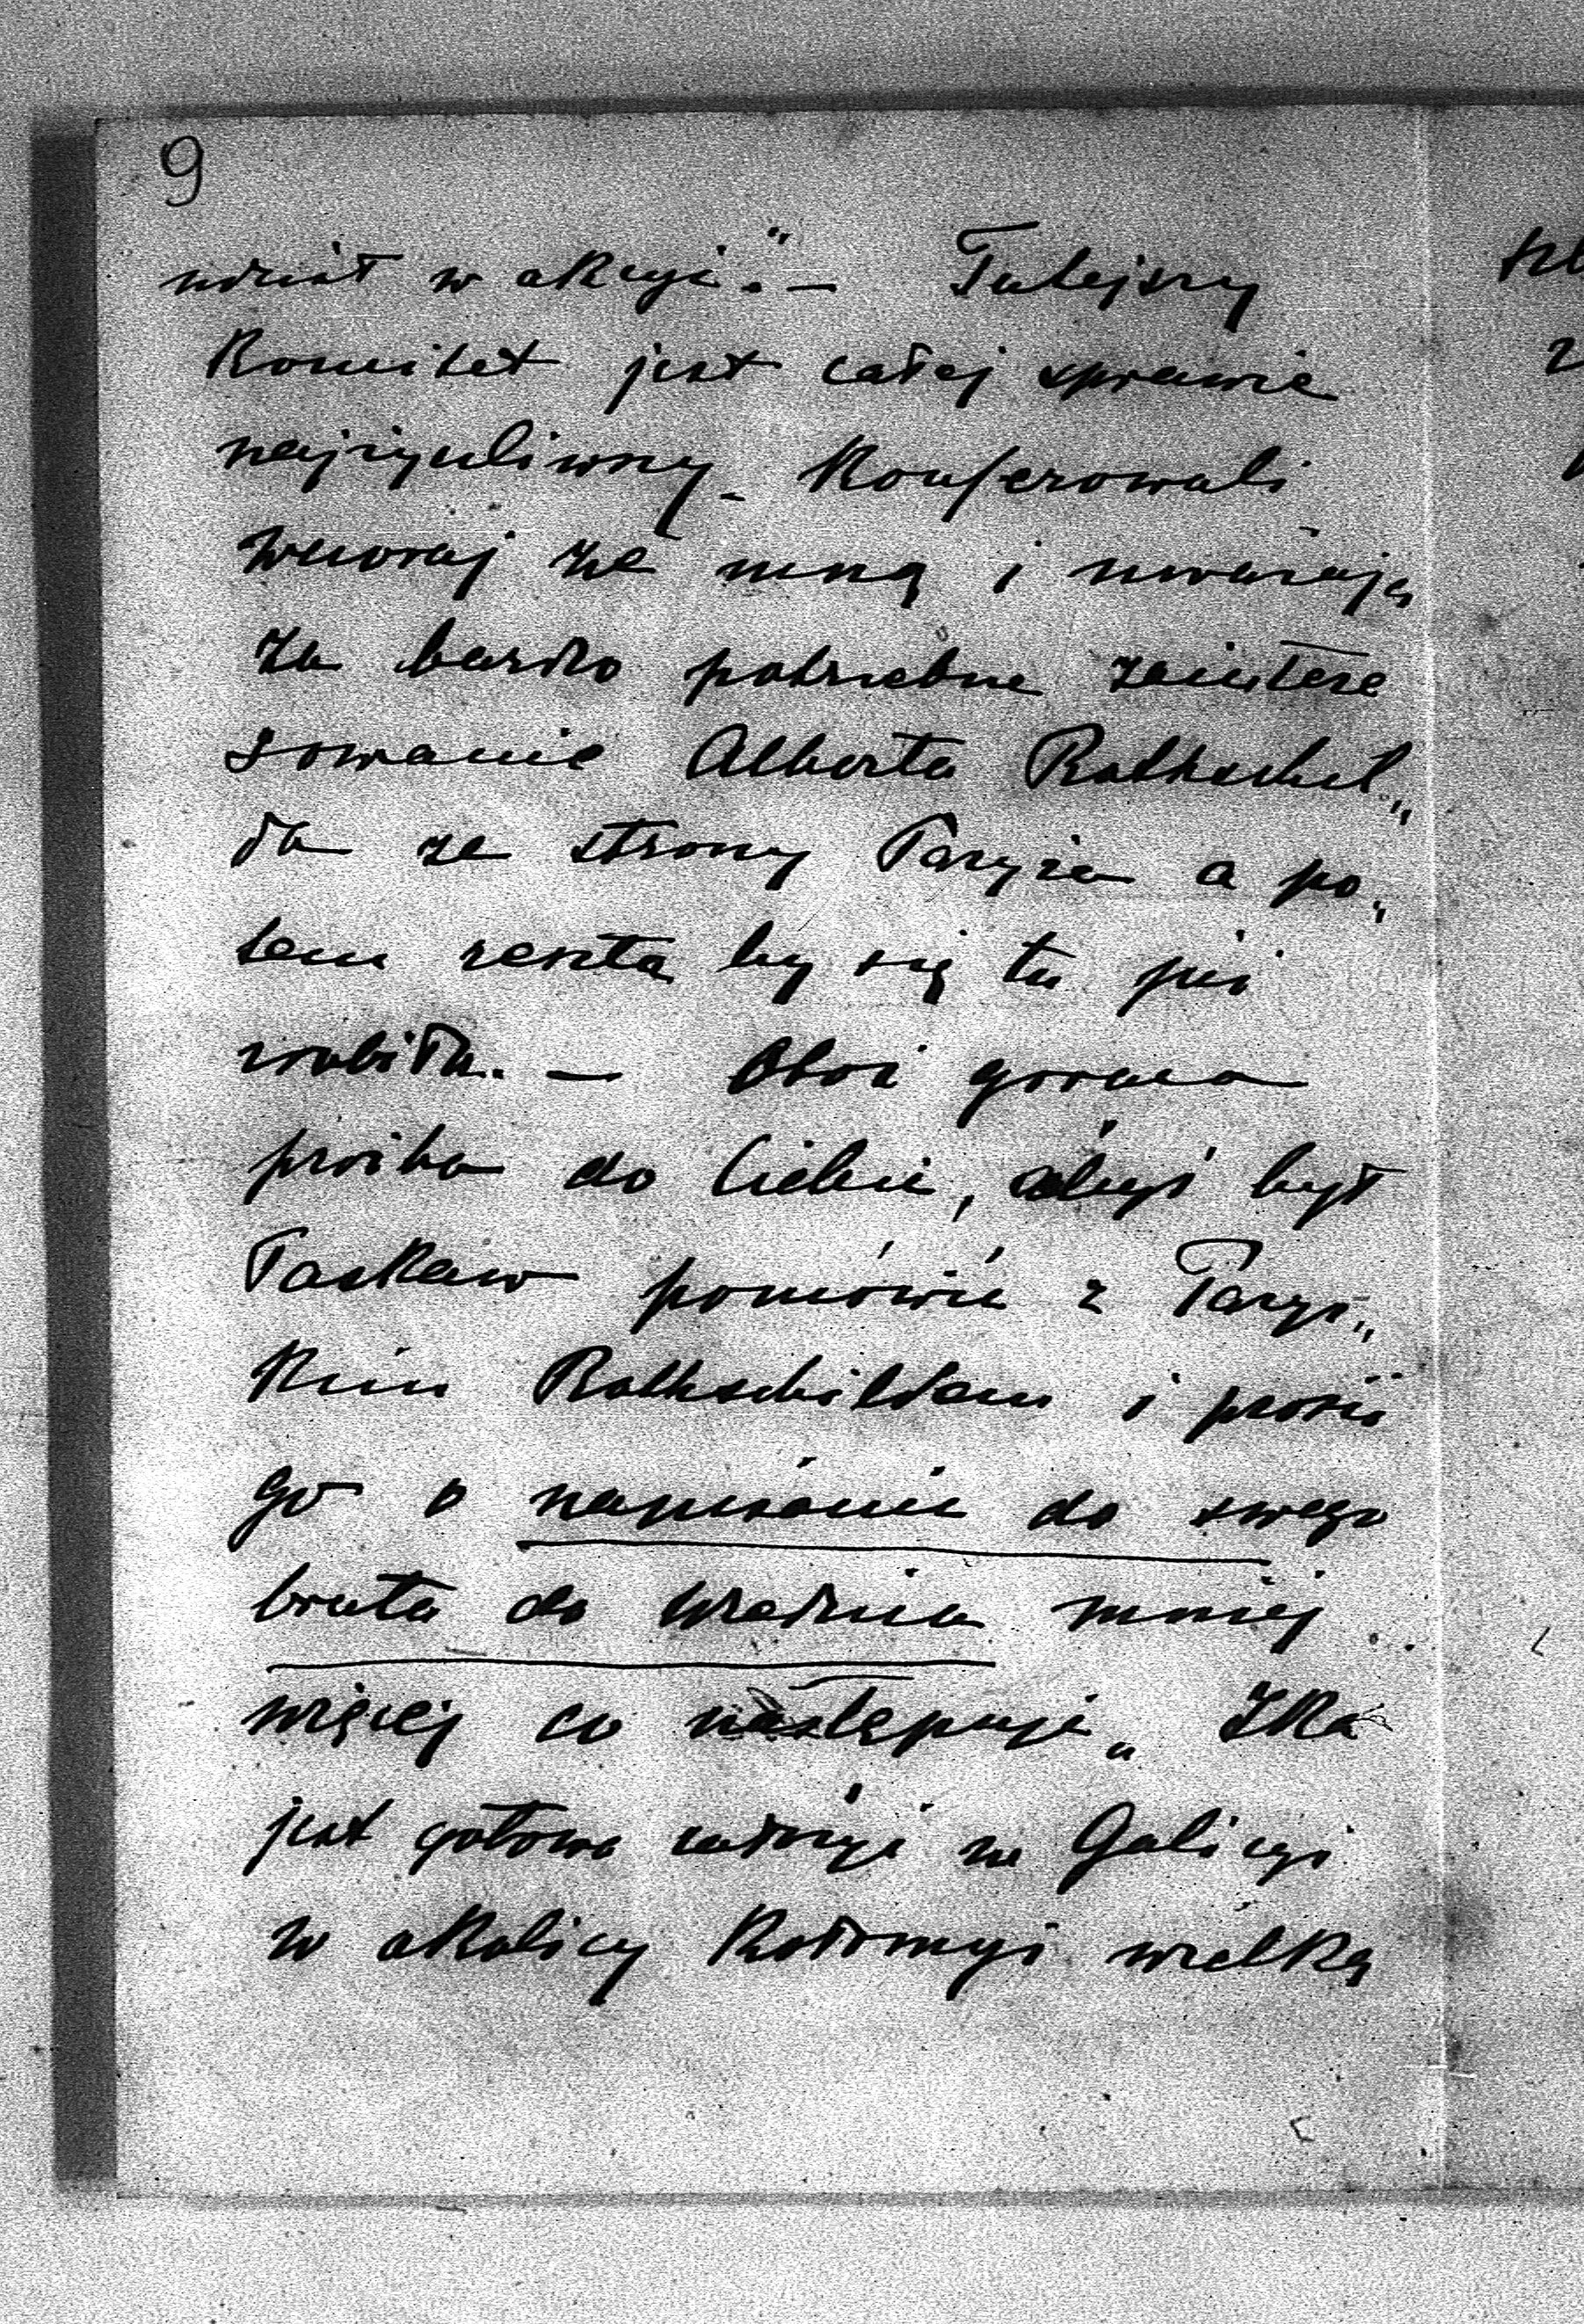 9
udział w akcyi." — Tutejszy
Komitet jest całej sprawie
najżyczliwszy. Konferowali
wczoraj ze mną i uważają
za bardzo potrzebne zaintere
sowanie Alberta Rothschil„
da ze strony Paryża a po„
tem reszta by się tu już
zrobiła. — Otóż gorąca
prośba do Ciebie, abyś był
łaskaw pomówić z Parys„
kim Rothschildem i prosić
go o napisanie do swego
brata do Wiednia mniej
więcej co następuje „ IKA
jest gotowa założyć w Galicyi
w okolicy Kołomyi wielką